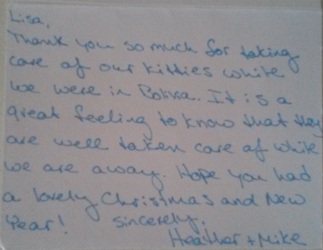 Lisa,
Thank you so much for taking
care of our kitties while
we were in. It is a
great feeling to know that they
are well taken care of while
we are away. Hope you had
a lovely Christmas and New
Year! Sincerely,
Heather + Mike